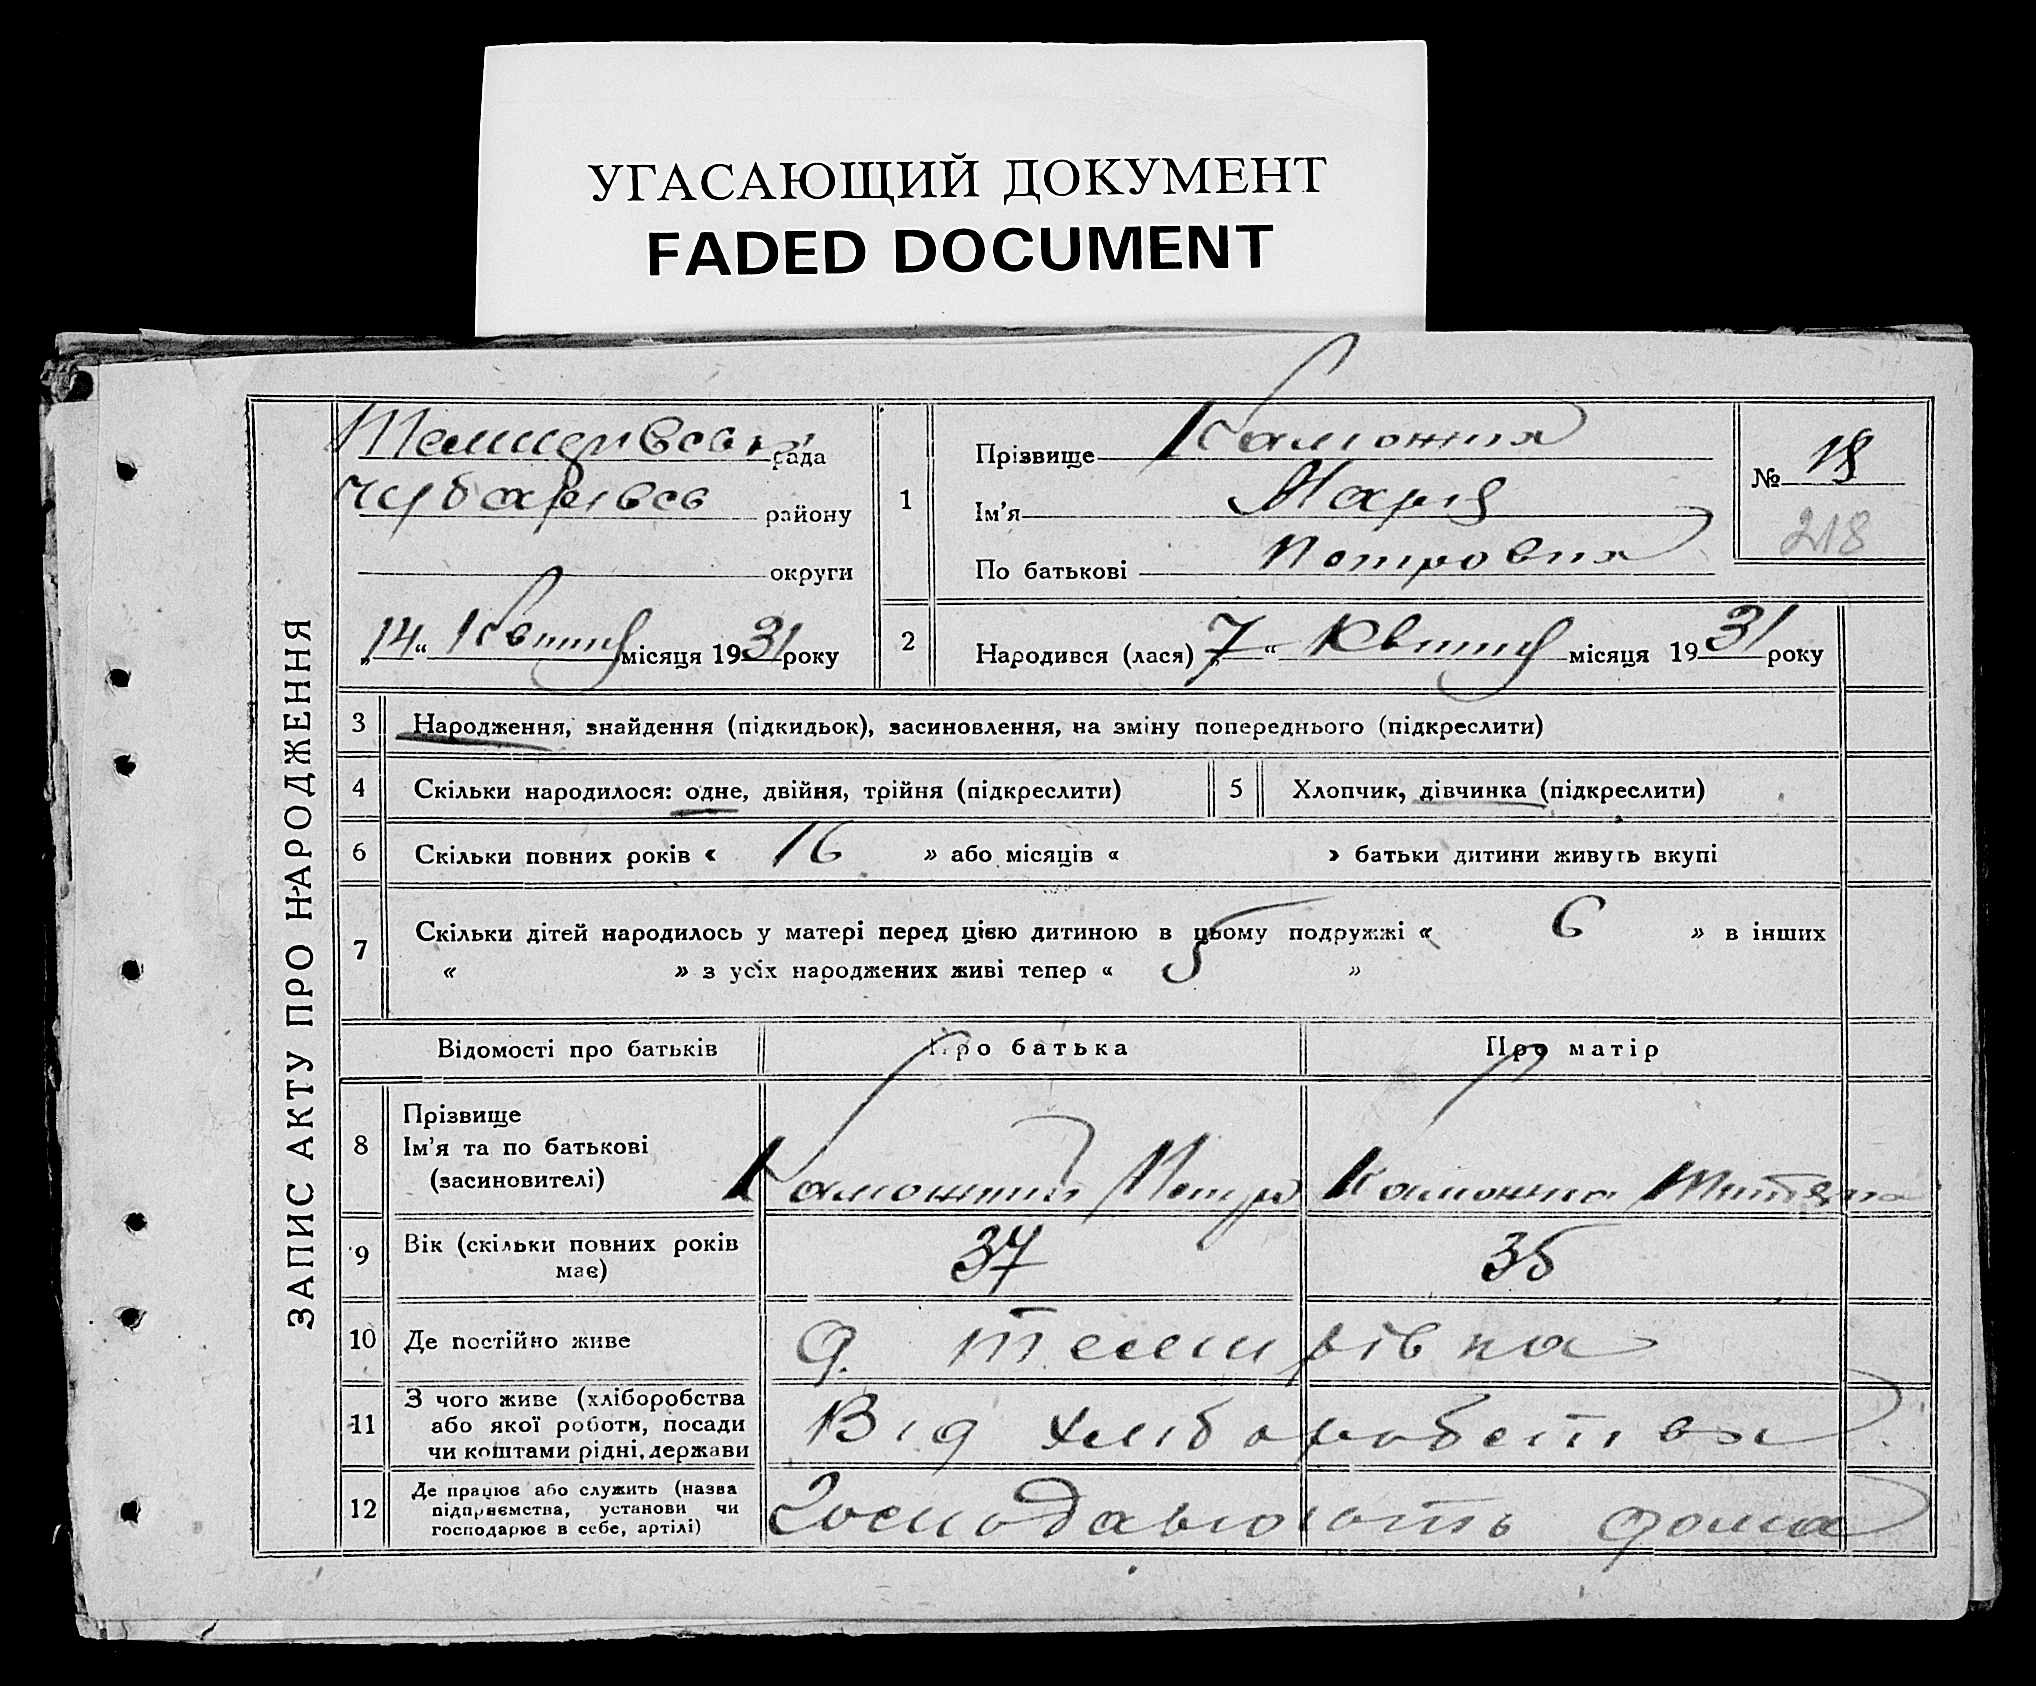 УГАСАЮЩИЙ ДОКУМЕНТ
FADED DOCUMENT
ЗАПИС АКТУ ПРО НАРОДЖЕННЯ
рада
Чубарівсь району
округи
„14“ Квітня місяця 1931 року
1
Прізвище Заможня
Ім’я Марія
По батькові Петровна
№ 18
218
2
Народився (лася) „7“ Квітня місяця 1931 року
3 Народження, знайдення (підкидьок), засиновлення, на зміну попереднього (підкреслити)
4 Скільки народилося: одне, двійня, трійня (підкреслити) 5 Хлопчик, дівчинка (підкреслити)
6 Скільки повних років « 16 » або місяців « » батьки дитини живуть вкупі
7 Скільки дітей народилось у матері перед цією дитиною в цьому подружжі « 6 » в інших
« » з усіх народжених живі тепер « 5 »
Відомості про батьків Про батька Про матір
8 Прізвище
Ім’я та по батькові
(засиновителі)
Петро
9 Вік (скільки повних років має) 37 35
10 Де постійно живе с. Темирівка
11 З чого живе (хліборобства
або якої роботи, посади
чи коштами рідні, держави
Від хліборобства
12 Де працює або служить (назва
підприємства, установи чи
господарює в себе, артілі)
Господарюють дома